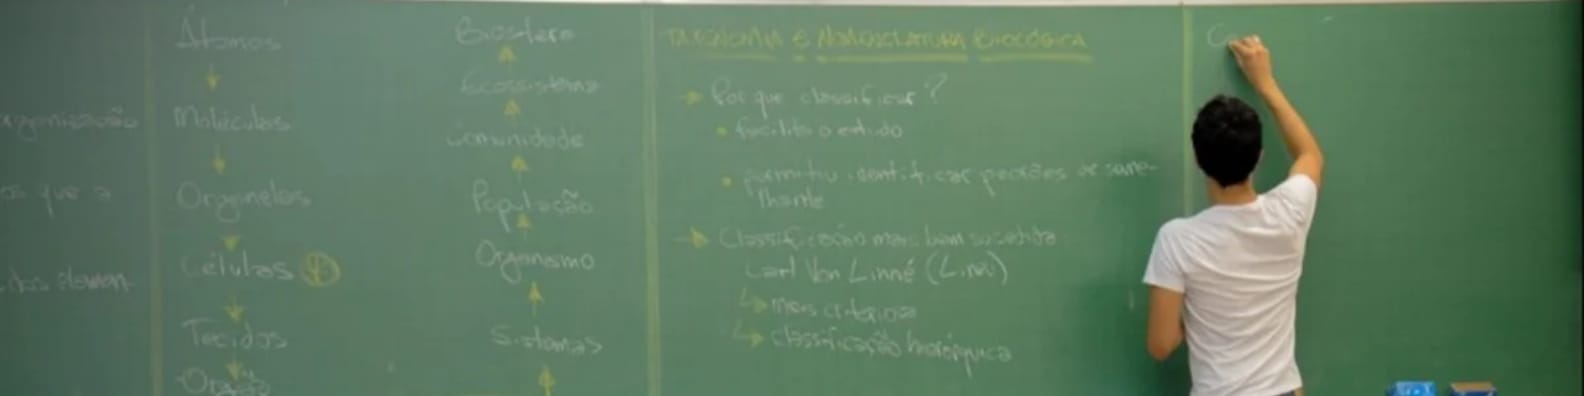 organização
os que a
Átomos
Moléculas
Organelas
Células
Tecidos
Órgão
Biosfera
Ecossistema
Comunidade
População
Organismo
Sistemas
TAXONOMIA E NOMENCLATURA BIOLÓGICA
Por que classificar?
facilita o estudo
permitiu identificar padrões de seme-
lhante
Classificação mais bem sucedida
Carl Von Linné (Lineu)
mais criteriosa
classificação hierárquica